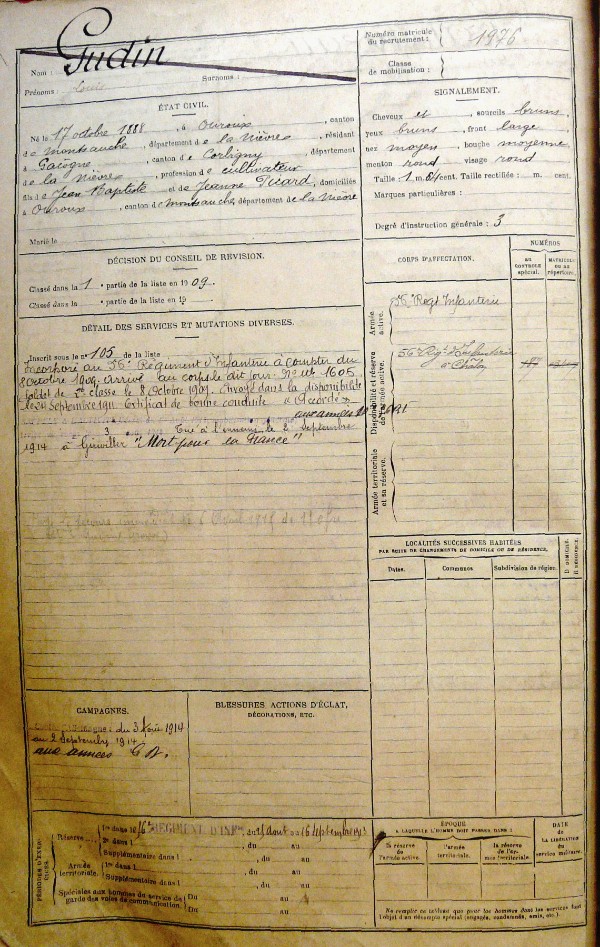 Gudin
Nom :
Prénoms : Louis Surnoms :
Numéro matricule
du recrutement : 1976
Classe
de mobilisation :
ÉTAT CIVIL.
Né le 17 octobre 1888, à Ouroux, canton
de Montsauche, département de la Nièvre, résidant
à Gacogne, canton de Corbigny, département
de la Nièvre, profession de cultivateur
fils de Jean Baptiste et de Jeanne Picard, domiciliés
à Ouroux, canton de Montsauche, département de la Nièvre
Marié le
SIGNALEMENT.
Cheveux et sourcils bruns
yeux bruns, front large
nez moyen, bouche moyenne
menton rond visage rond
Taille : 1 m. cent. Taille rectifiée : m. cent.
Marques particulières :
Degré d'instruction générale : 3
DÉCISION DU CONSEIL DE REVISION.
Classé dans la 1 partie de la liste en 1909.
Classé dans la partie de la liste en 19
CORPS D'AFFECTATION.
NUMÉROS
AU CONTROLE spécial.
MATRICULE ou au répertoire.
Armée active.
56e Régt Infanterie
Disponibilité et réserve de l'armée active.
56 Régt d'Infanterie
à Chalon
Armée territoriale et sa réserve.
DÉTAIL DES SERVICES ET MUTATIONS DIVERSES.
Inscrit sous le n° 105 de la liste
Incorporé au 56e Régiment d'Infanterie à compter du
8 octobre 1909. Arrivé au corps le dit jour. No mle 1605
soldat de 2e classe le 8 octobre 1909. Envoyé dans la disponibilité
le 24 Septembre 1911. Certificat de bonne conduite "Accordé"
aux armées
Tué à l'ennemi le 2 Septembre
1914 à "Mort pour la France"
LOCALITÉS SUCCESSIVES HABITÉES
PAR SUITE DE CHANGEMENTS DE DOMICILE OU DE RÉSIDENCE.
Dates. Communes Subdivision de région. D. DOMICILE. R. RÉSIDENCE.
CAMPAGNES.
du 3 Août 1914
au 2 Septembre 1914
aux armées
BLESSURES, ACTIONS D'ÉCLAT,
DÉCORATIONS, ETC.
PÉRIODES D'EXERCICES
Réserve
1re dans le 56e RÉGIMENT D'INFie, du août au 16 septembre 1913
2e dans l , du au
Supplémentaire dans l , du au
Armée territoriale.
1re dans l , du au
Supplémentaire dans l , du au
Spéciales aux hommes du service de garde des voies de communication.
Du au
Du au
ÉPOQUE
A LAQUELLE L'HOMME DOIT PASSER DANS :
la réserve de l'armée active.
l'armée territoriale.
la réserve de l'armée territoriale.
DATE
de
LA LIBÉRATION
du
service militaire.
Ne remplir ce tableau que pour les hommes dont les services font
l'objet d'un décompte spécial (engagés, condamnés, omis, etc.)